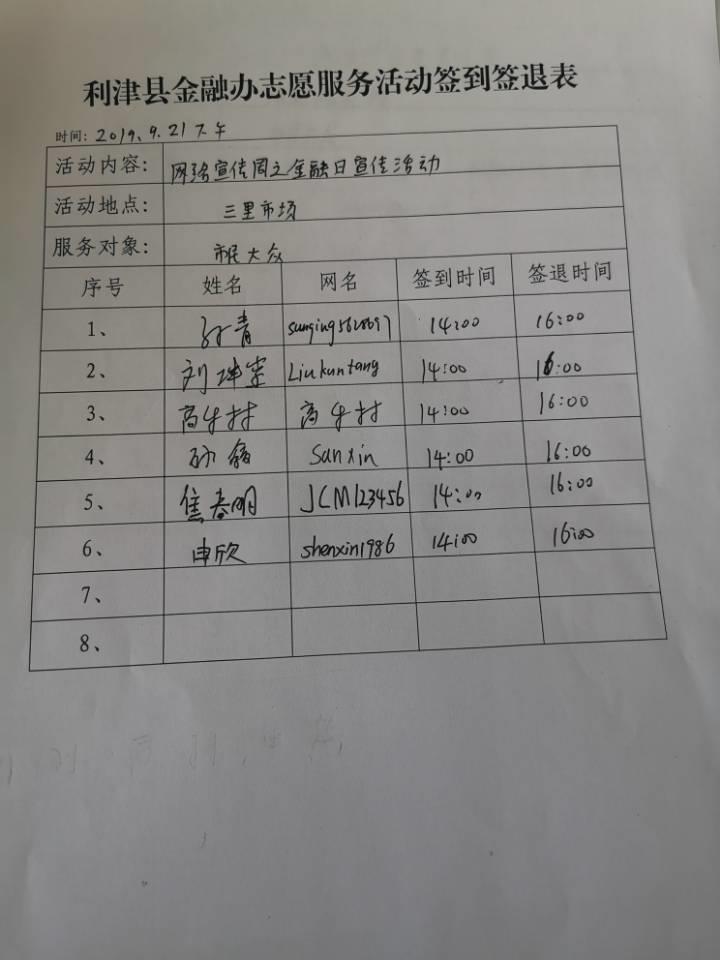 利津县金融办志愿服务活动签到签退表
时间: 2019.9.21下午
活动内容: 网络宣传周之金融日宣传活动
活动地点: 三里市场
服务对象: 市民大众
序号 姓名 网名 签到时间 签退时间
1、 孙青 14:00 16:00
2、 刘坤棠 Liukuntang 14:00 16:00
3、 高生村 高生村 14:00 16:00
4、 孙鑫 sunxin 14:00 16:00
5、 焦春明 JCM123456 14:00 16:00
6、 申欣 shenxin1986 14:00 16:00
7、
8、